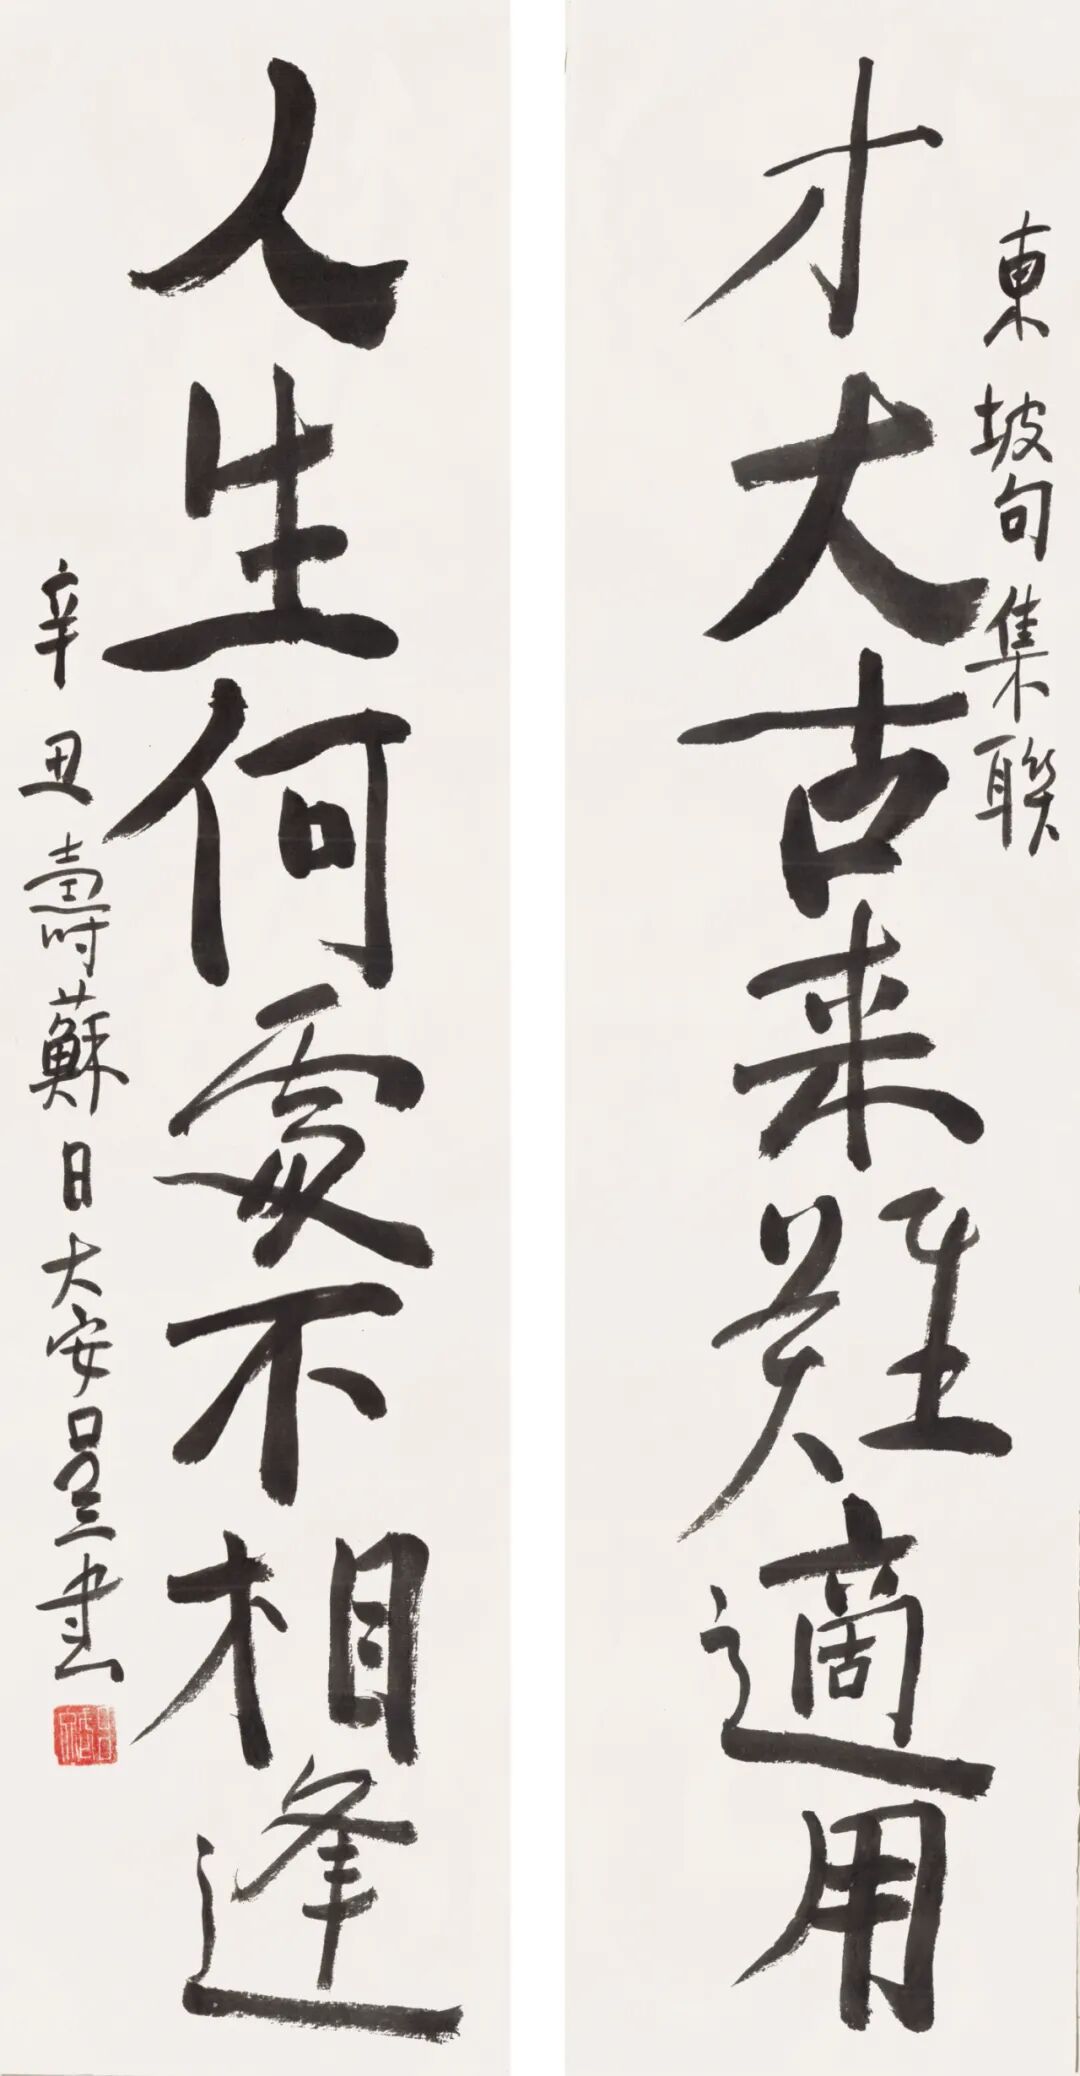 東坡句集聯
才大古来難適用
人生何處不相逢
辛丑壽蘇日大安呈書